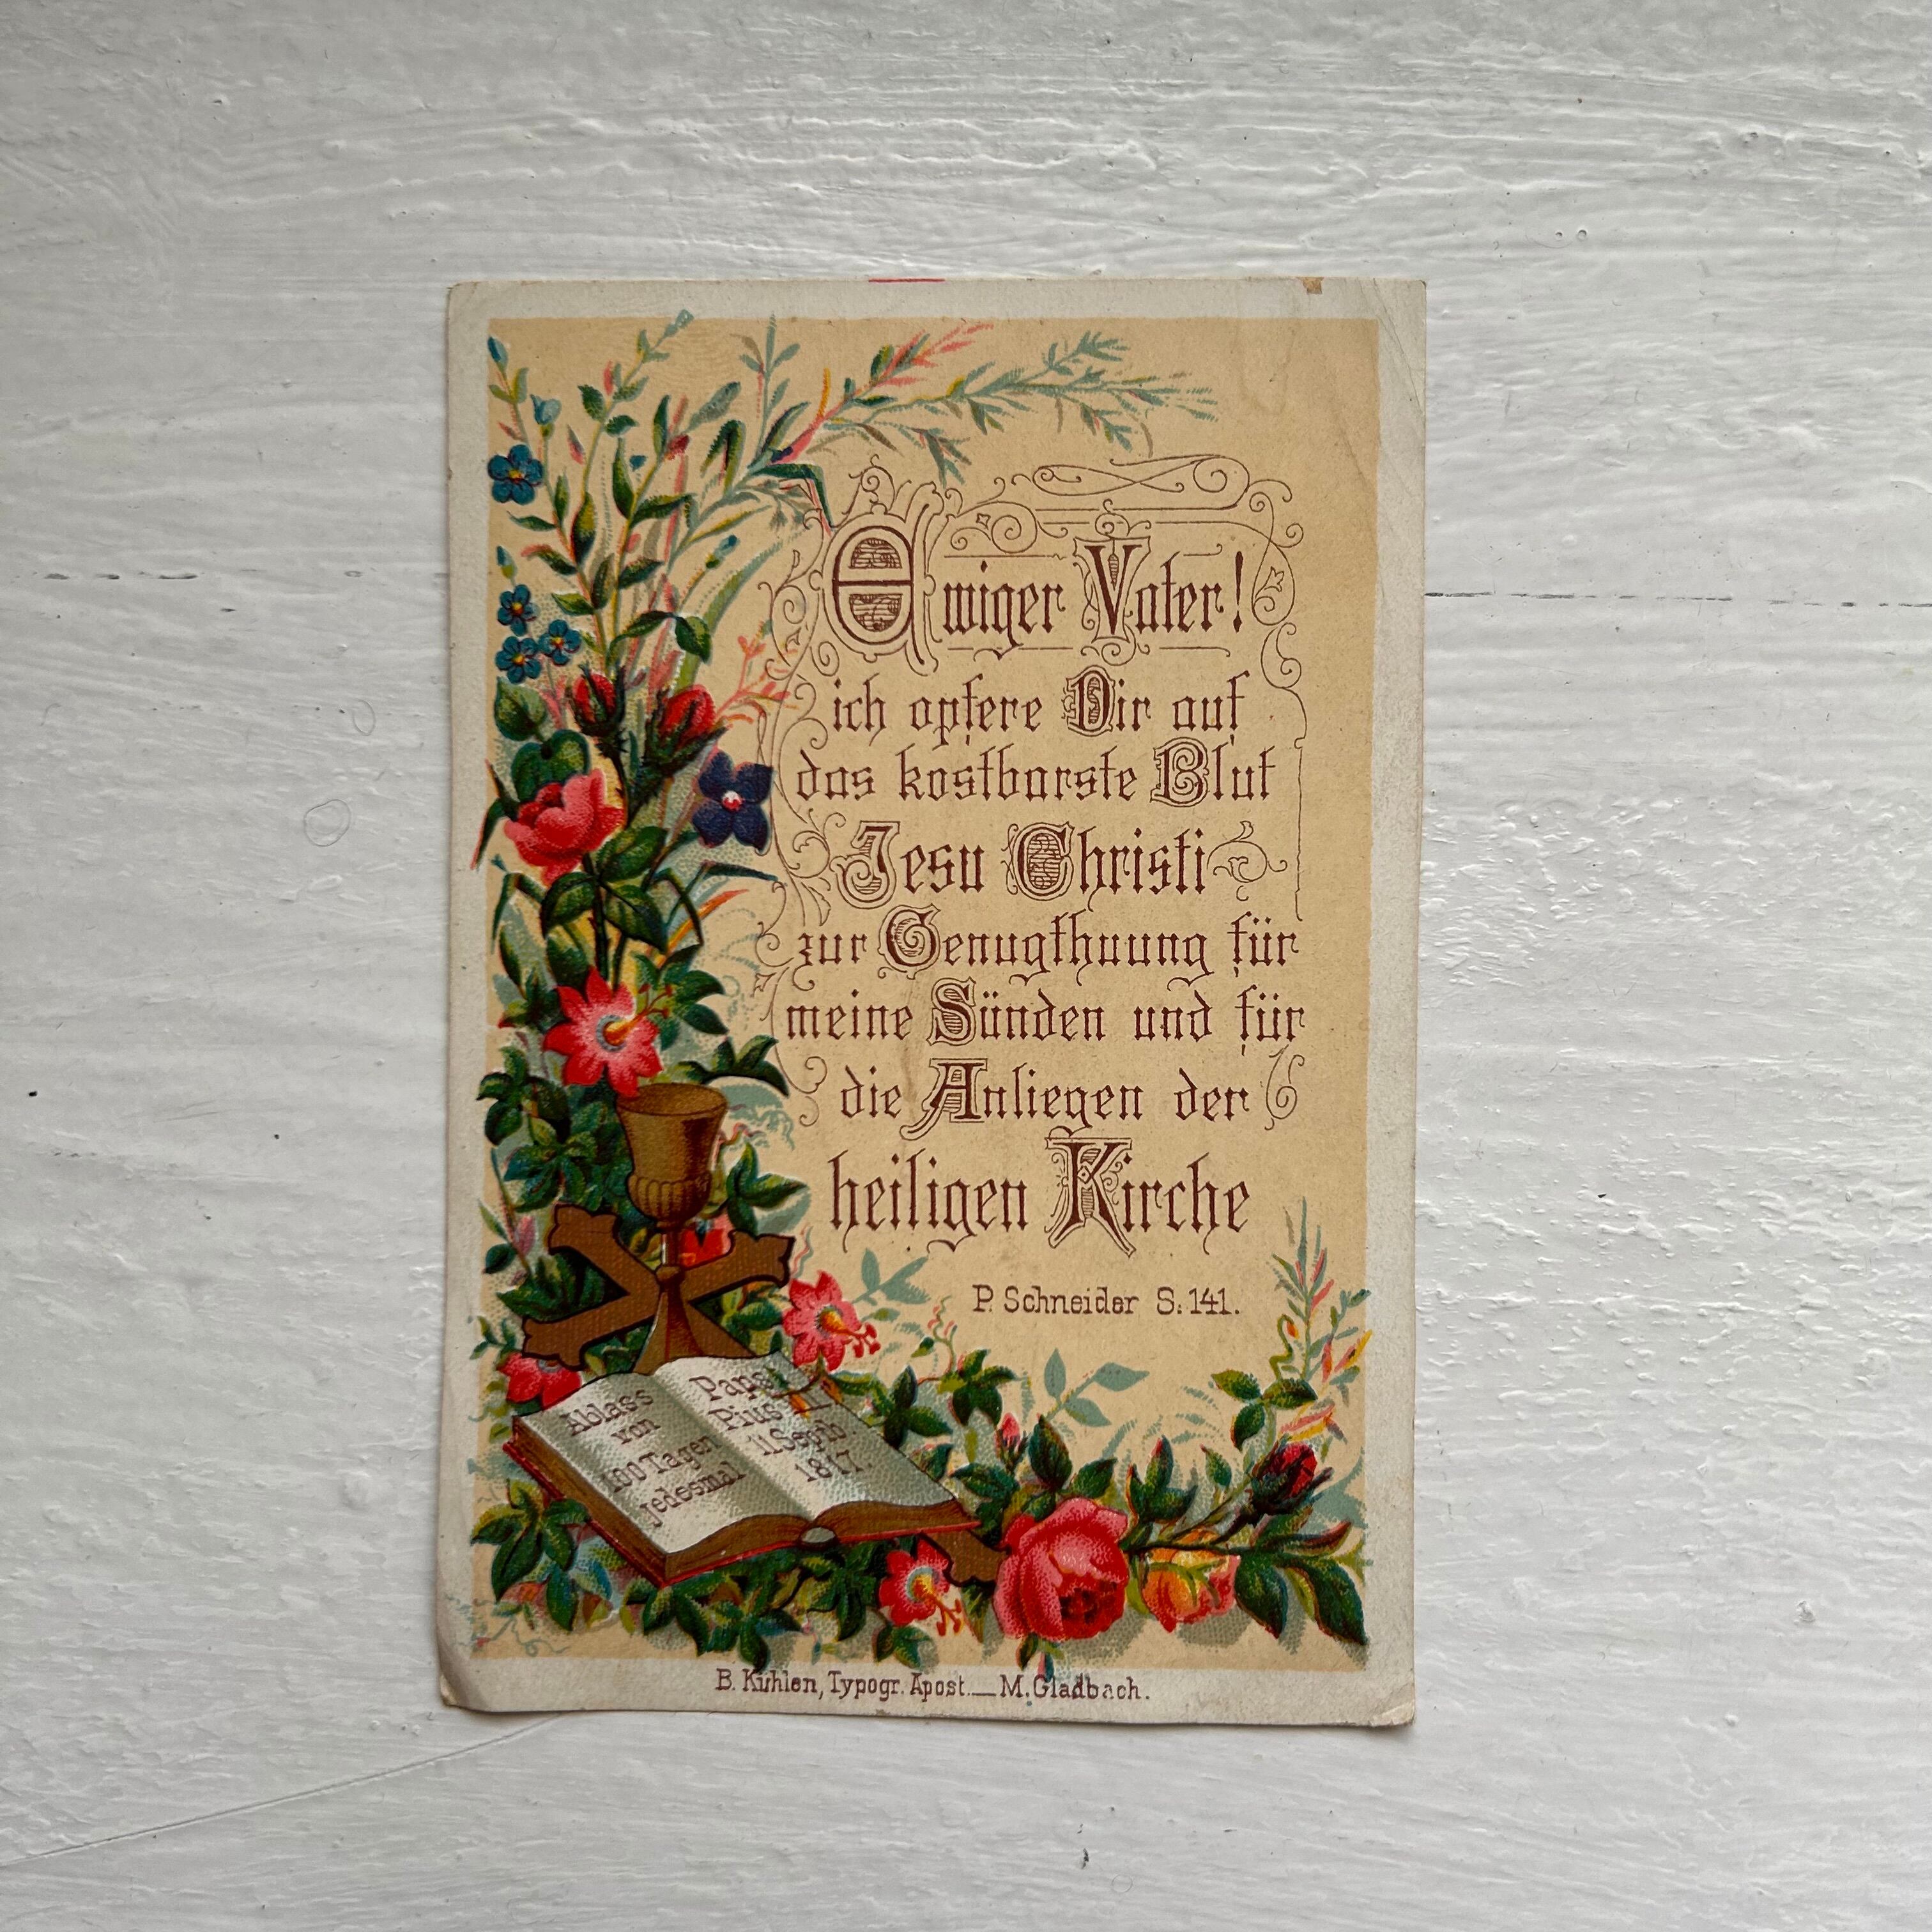 Ewiger Vater!
ich opfere Dir auf
das kostbarste Blut
Jesu Christi
zur Genugthuung für
meine Sünden und für
die Anliegen der
heiligen Kirche
P. Schneider S. 141.
Ablass
von
100 Tagen
jedesmal
Papst
Pius
11 Septb
1817.
B. Kühlen, Typogr. Apost. — M. Gladbach.